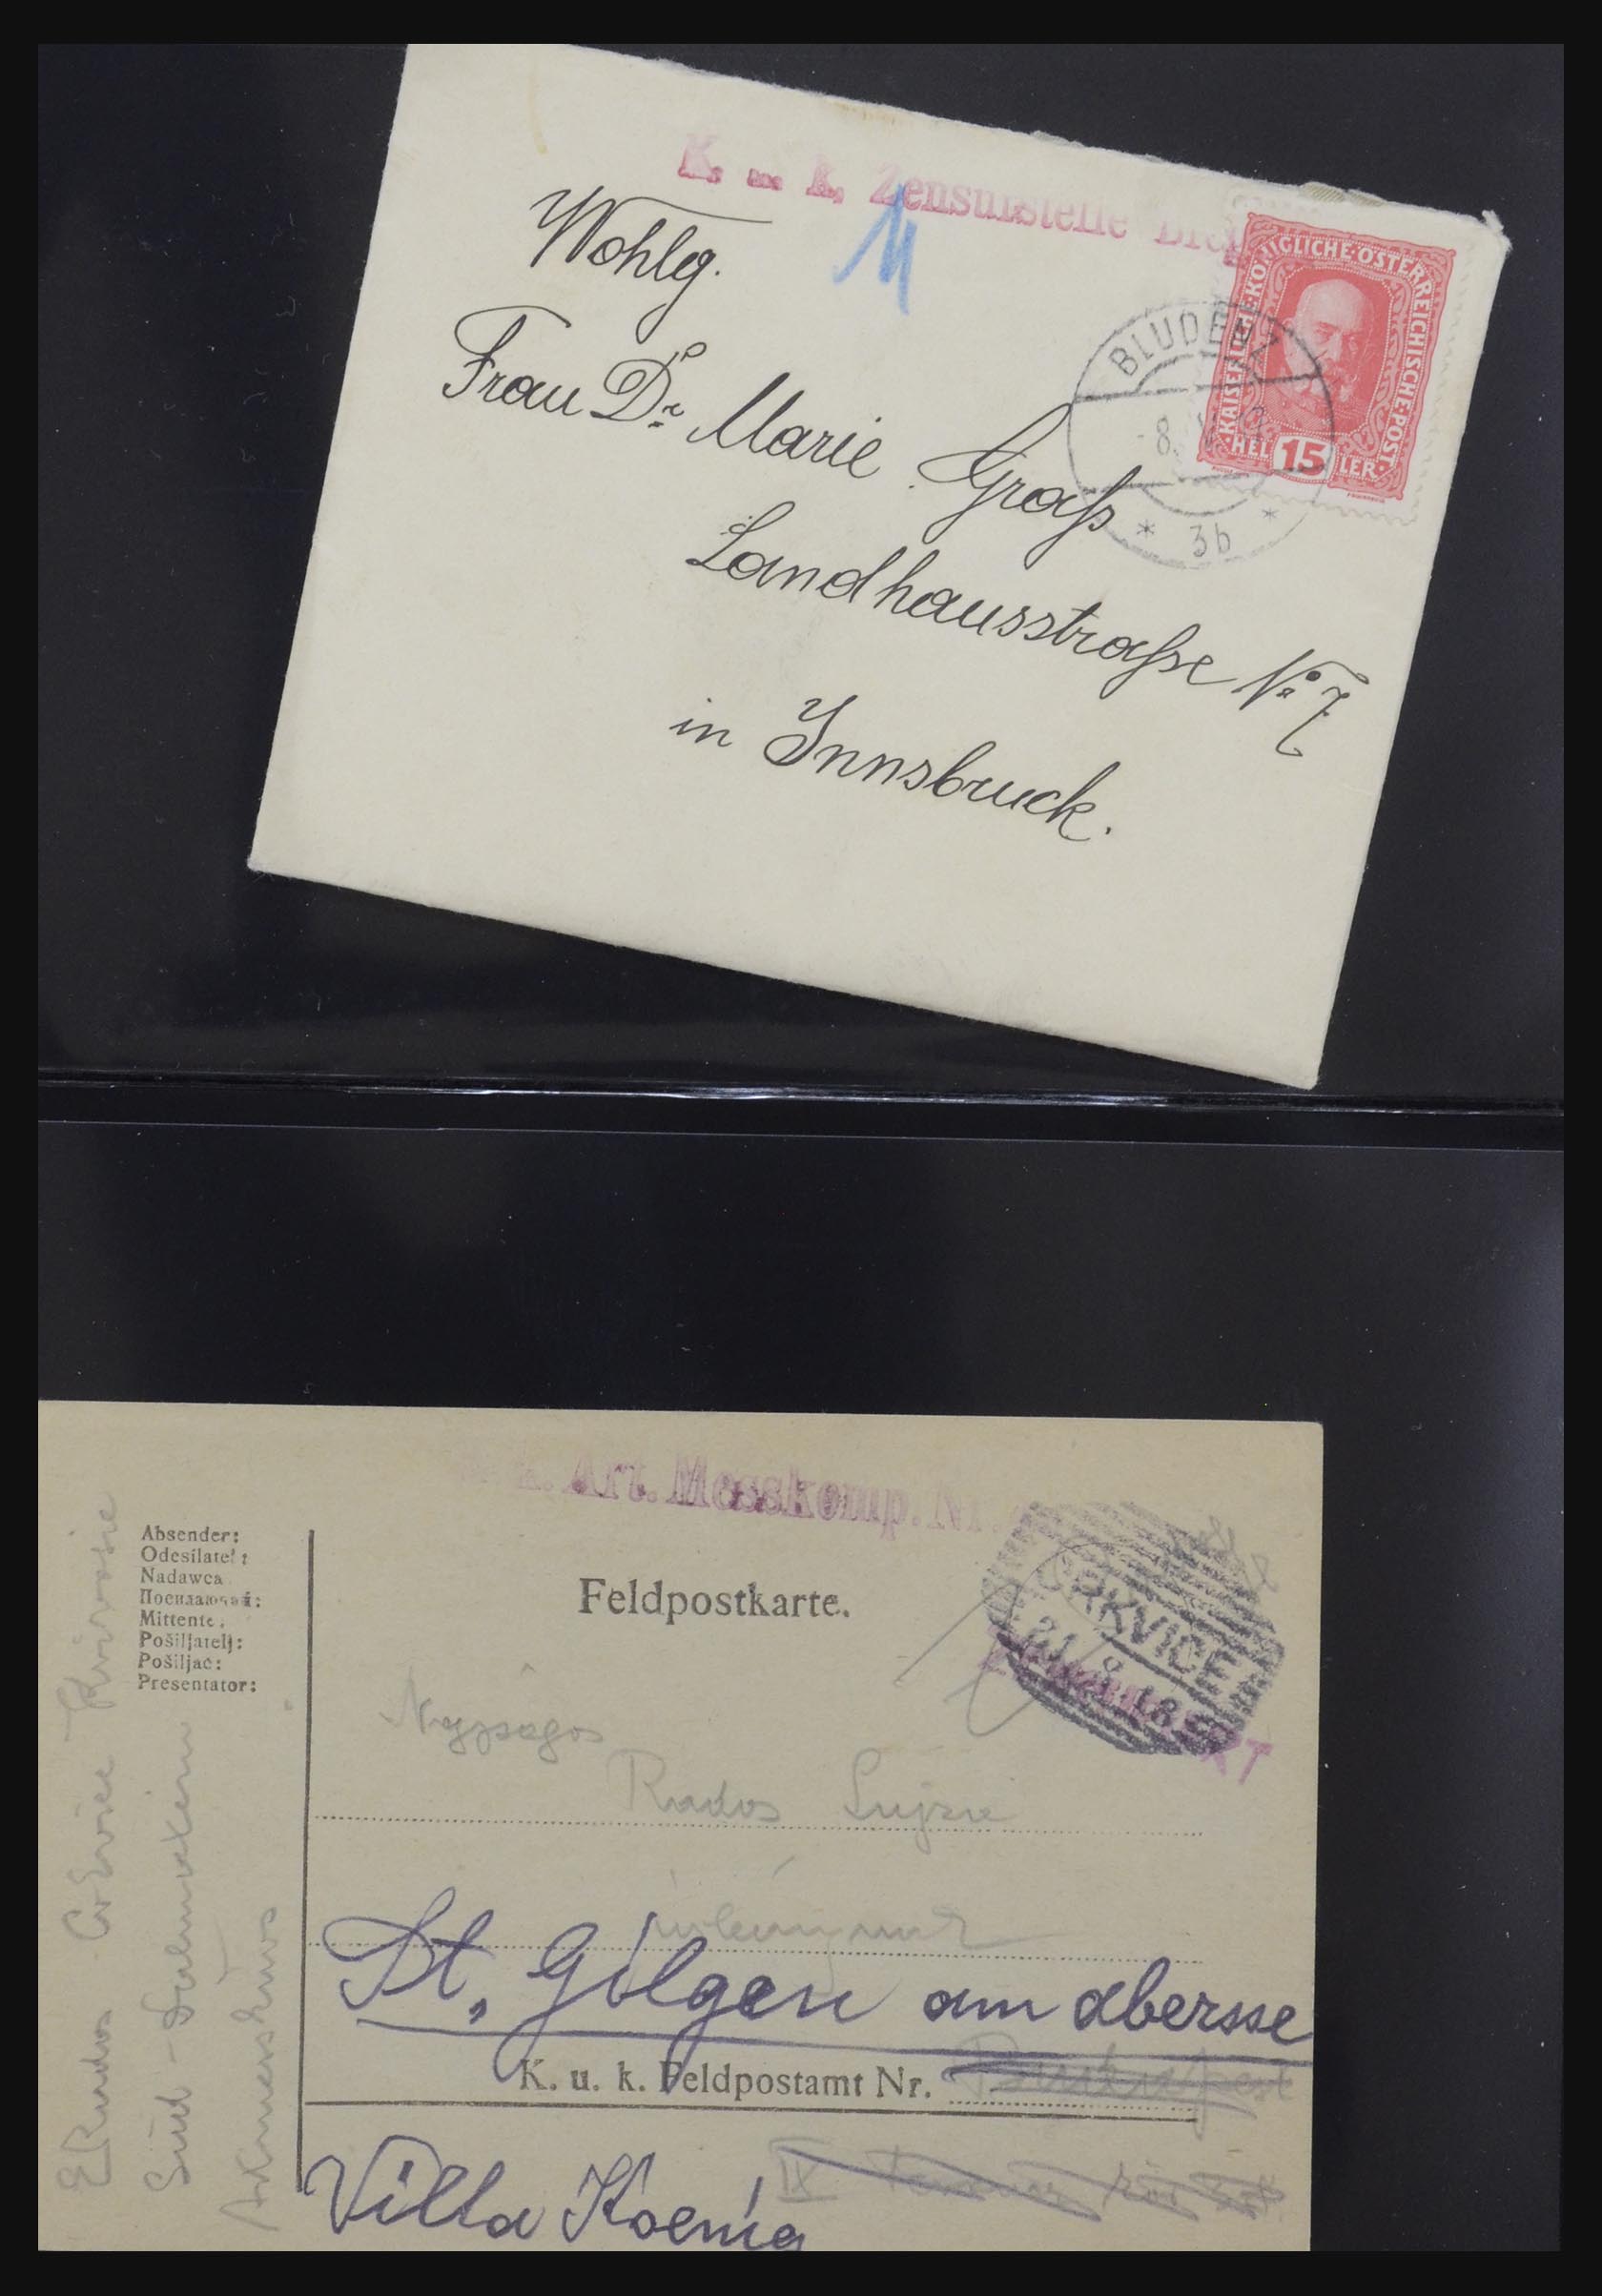 K. u. k. Zensurstelle
Wohlg.
Frau Dr. Marie Graß
Landhausstraße No 7
in Innsbruck.
KAISERLICHE·KÖNIGLICHE·ÖSTERREICHISCHE·POST
HEL 15 LER
BLUDENZ
8.
* 3b *
k. Art. Messkomp. Nr.
Absender:
Odesílatel:
Nadawca
Mittente:
Pošiljatelj:
Pošiljač:
Presentator:
Feldpostkarte.
CRKVICE
21 8 18
Nagyságos
Rados
St. Gilgen am abersse
K. u. k. Feldpostamt Nr.
Budapest
IX
Villa Koenig
E Rados
Süd-Dalmatien